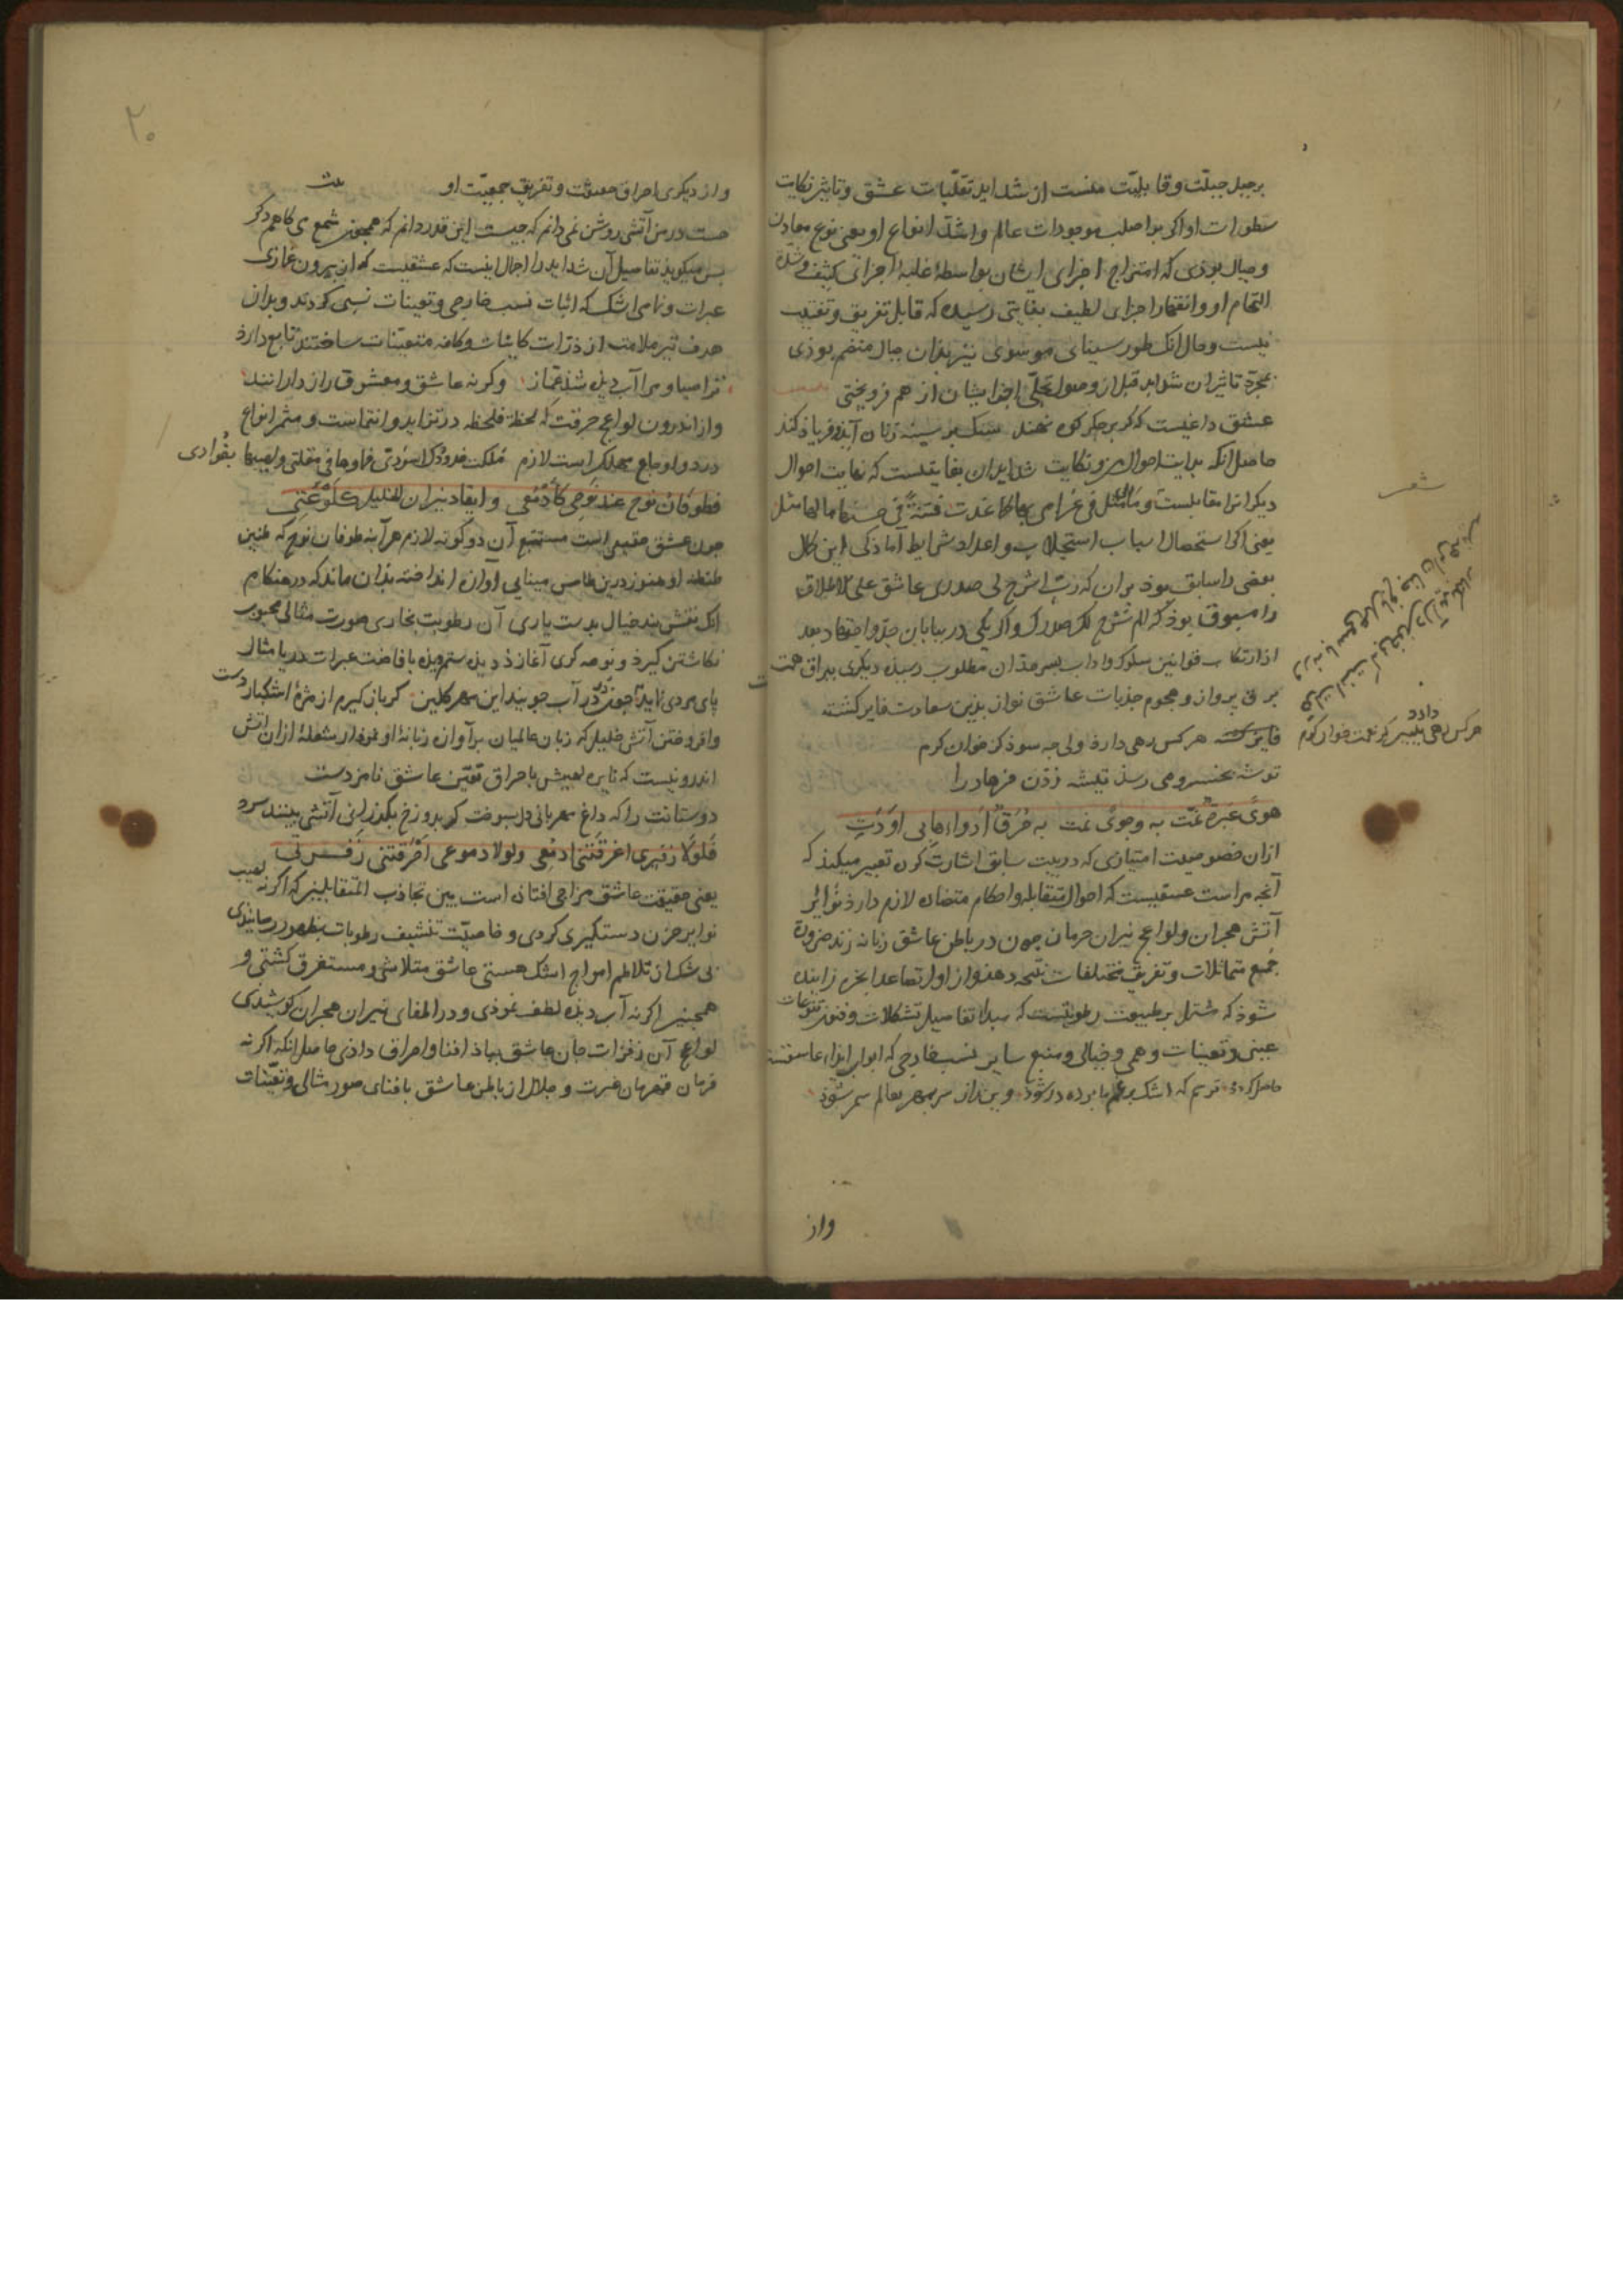 بر جبل جبلّت و قابلیّت منست از شداید تقلّبات عشق و تاثیر نکایت
سطورات او اکر بر اصلب موجودات عالم و اشدّ انواع او یعنی نوع معادن
و جبال بوذی که امتزاج اجزای ایشان بواسطهٔ غلبهٔ اجزای کثیف و شدّة
التحام او و انقهار اجزای لطیف بغایتی رسیده که قابل تفریق و تفتیت
نیست و حال انک طور سینای موسوی نیز بذان جبال منضم بوذی
بمجرّد تاثیر ان شداید قبل از وصول تجلّی اجزا ایشان از هم فرو ریختی
عشق داغیست که کر بر جکر کوه نهند سنک بر سینه زنان آید و فریاذ کند
حاصل انکه بدایت احوال من و نکایت شداید ان بغایتیست که نهایت احوال
دیکرانرا مقابلست و
یعنی اکر استحصال اسباب استجلاب و اعداد شرایط آماذکی این کل
بعضی را سابق بوذ بران که ربّ اشرح لی صدری عاشق علی الاطلاق
را مسبوق بوذ که الم نشرح لک صدرک و اکر یکی در بیابان جدّ و اجتهاد بعد
از ارتکاب قوانین سلوک و اداب بسر حد ان مطلوب رسیذ دیکری ببراق همت
برق پرواز و هجوم جذبات عاشق نواز بذین سعادت فایز کشته
هر کس رهی دارذ ولی چه سوذ کز خوان کرم
توشه بخسرو می رسذ تیشه زدن فرهاد را
هوًی عبرة نمّت به و جوًی نمت به حُرَق ادواءها بی اَوْدَتِ
ازان خصوصیت امتیازی که در بیت سابق اشارت کرد تعبیر میکند که
آنچه مراست عشقیست که احوال متقابله و احکام متضاده لازم دارذ نوایر
آتش هجران و لواعج نیران حرمان چون در باطن عاشق زبانه زند ضرورة
جمع متماثلات و تفریق مختلفات نتیجه دهد و از او ارتصاعد ابخره زاینده
شوذ که مشتمل بر طبیعت رطوبتست که مبدا تفاصیل تشکلات و فنون تنوعات
عینی و تعینات وهمی و خیالی و منبع سایر نسب خارجی که ابواب ابراء عاشقند
ترسم که اشک بر غم ما پرده در شوذ وین راز سر بمهر بعالم سمر شوذ
واز
شعر
هرکس رهی
و از دیکری احراق معیشت و تفریق جمعیّت او
بیت
هست در من آتشی روشن نمی دانم که چیست این قدر دانم که همچون شمع می کاهم دکر
پس میکویذ تفاصیل آن شداید را اجمال اینست که عشقیست که از بیرون غمازی
عبرات و نمامی اشک که اثبات نسب خارجی و تعینات نسبی کردند و بدان
هدف تیر ملامت از ذرّات کاینات و کافه متعیّنات ساختند تابع دارذ
ترا صبا و مرا آب دیده شذ غماز وکرنه عاشق و معشوق رازدارانند
و از اندرون لواعج حرقت که لحظة فلحظه در تزاید و انتماست و مثمر انواع
درد و اوجاع مهلک راست لازم
فطوفان نوح عند نوحی کادمعی و ایقاد نیران الخلیل کلوعتی
چون عشق حقیقی است مستتبع آن دو کونه لازم هر آینه طوفان نوح که طنین
طنطنه او هنوز درین طاس مینایی آوازه انداخته بذان ماند که در هنکام
انک نقش بند خیال بدست یاری آن رطوبت بخاری صورت مثالی محبوب
نکاشتن کیرذ و نوحه کری آغاز ذ دیده ستم دیده با فاضت عبرات دریا مثال
پای مردی نماید تا چون در آب جویند این مهر کلین کر باز کیرم از مژهٔ اشکبار دست
و افروختن آتش خلیل که زبان عالمیان بر آوازه زبانهٔ او نموذار شعلهٔ ازان آتش
اندرونیست که نایره لهیبش با حراق تعیّن عاشق نامزدست
دوستانت را که داغ مهربانی دل بسوخت کر بدوزخ بکذرانی آتشی بینند سرد
فلولا زفیری اغرقتنی ادمعی ولولا دموعی احرقتنی زفرتی
یعنی حقیقت عاشق مزاجی افتاده است بین تجاذب المتقابلین که اکر نه لهیب
نوایر حزن دستکیری کردی و خاصیّت تنشیف رطوبات بظهور رسانیذی
بی شک از تلاطم امواج اشک هستی عاشق متلاشی و مستغرق کشتی و
همچنین اکر نه آب دیذه لطف نموذی و در اطفای نیران هجران کوشیذی
لواعج آن زفرات جان عاشق بباذ افنا و احراق داذی حاصل انکه اکر نه
فرمان قهرمان غیرت و جلال از باطن عاشق بافنای صور مثالی و تعیّنات
۲۰